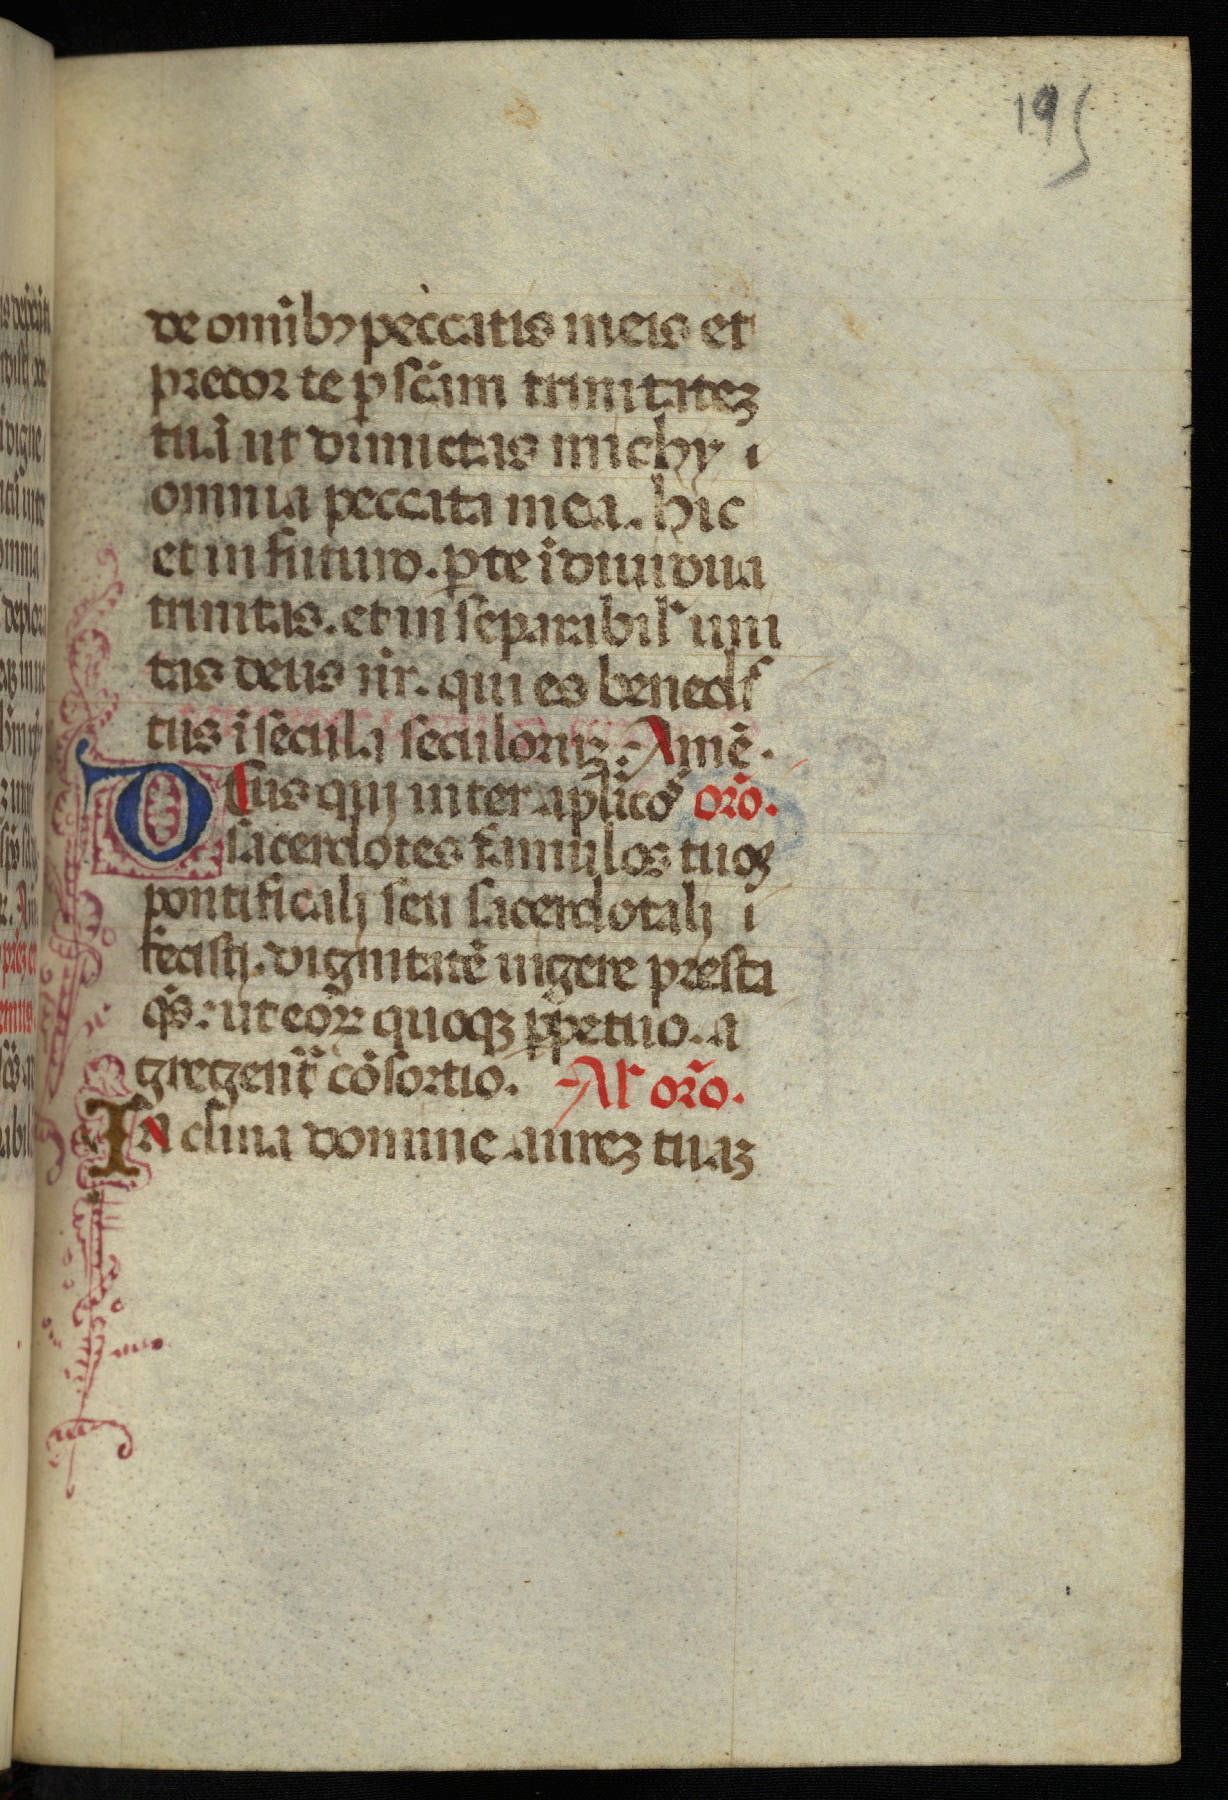 195
de om̅ibꝫ peccatis meis et
precor te ꝑ sc̄am trinitateꝫ
tuā ut dimictas michy i
omnia peccata mea. hic
et in futuro. ꝑ te īdiuidua
trinitas. et in separabil' uni
tas deus nr̄. qui es benedi
tus ī secula seculoruꝫ. Amē.
Deus qui inter aplīcos orō.
sacerdotes famulos tuos
pontificali seu sacerdotali i
fecisti. dignitatē uigere presta
qs̄. ut eoꝝ quoqꝫ ꝑpetuo. a
gregent̄ cōsortio. Al' orō.
In clina domine aureꝫ tuaꝫ